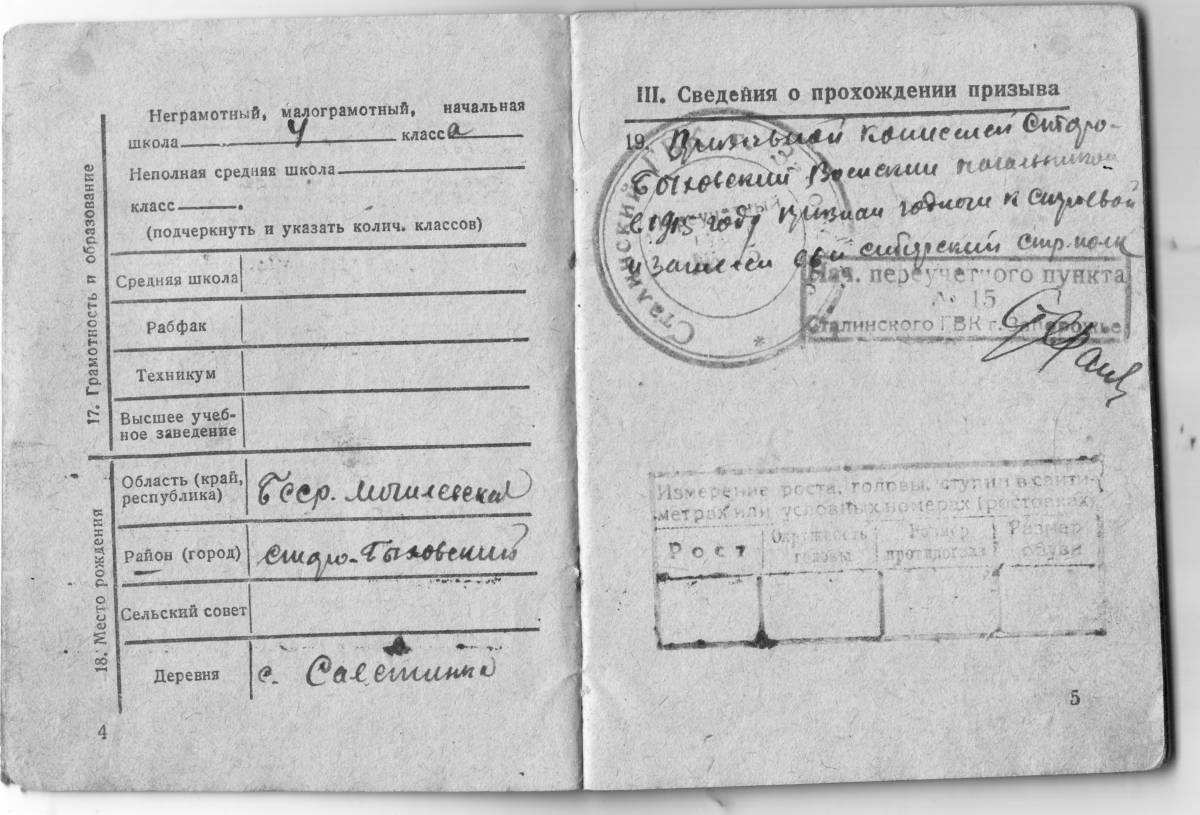 17. Грамотность и образование
Неграмотный, малограмотный, начальная
школа 4 класса
Неполная средняя школа
класс .
(подчеркнуть и указать колич. классов)
Средняя школа
Рабфак
Техникум
Высшее учеб-
ное заведение
18. Место рождения
Область (край,
республика)
Бсср. Могилевская
Район (город)
Старо-Быховский
Сельский совет
Деревня
с.
4
III. Сведения о прохождении призыва
19. Призывной комиссией Старо-
Быховский Воинский начальником
в 1915 году признан годном к строевой
и зачислен сибирский стр. полк
Сталинский
Нач. переучетного пункта
№ 15
Сталинского ГВК г. Запорожье
Измерение роста, головы, ступни в санти-
метрах или условных номерах (ростовках)
Рост
Окружность
головы
Размер
противогаза
Размер
обуви
5